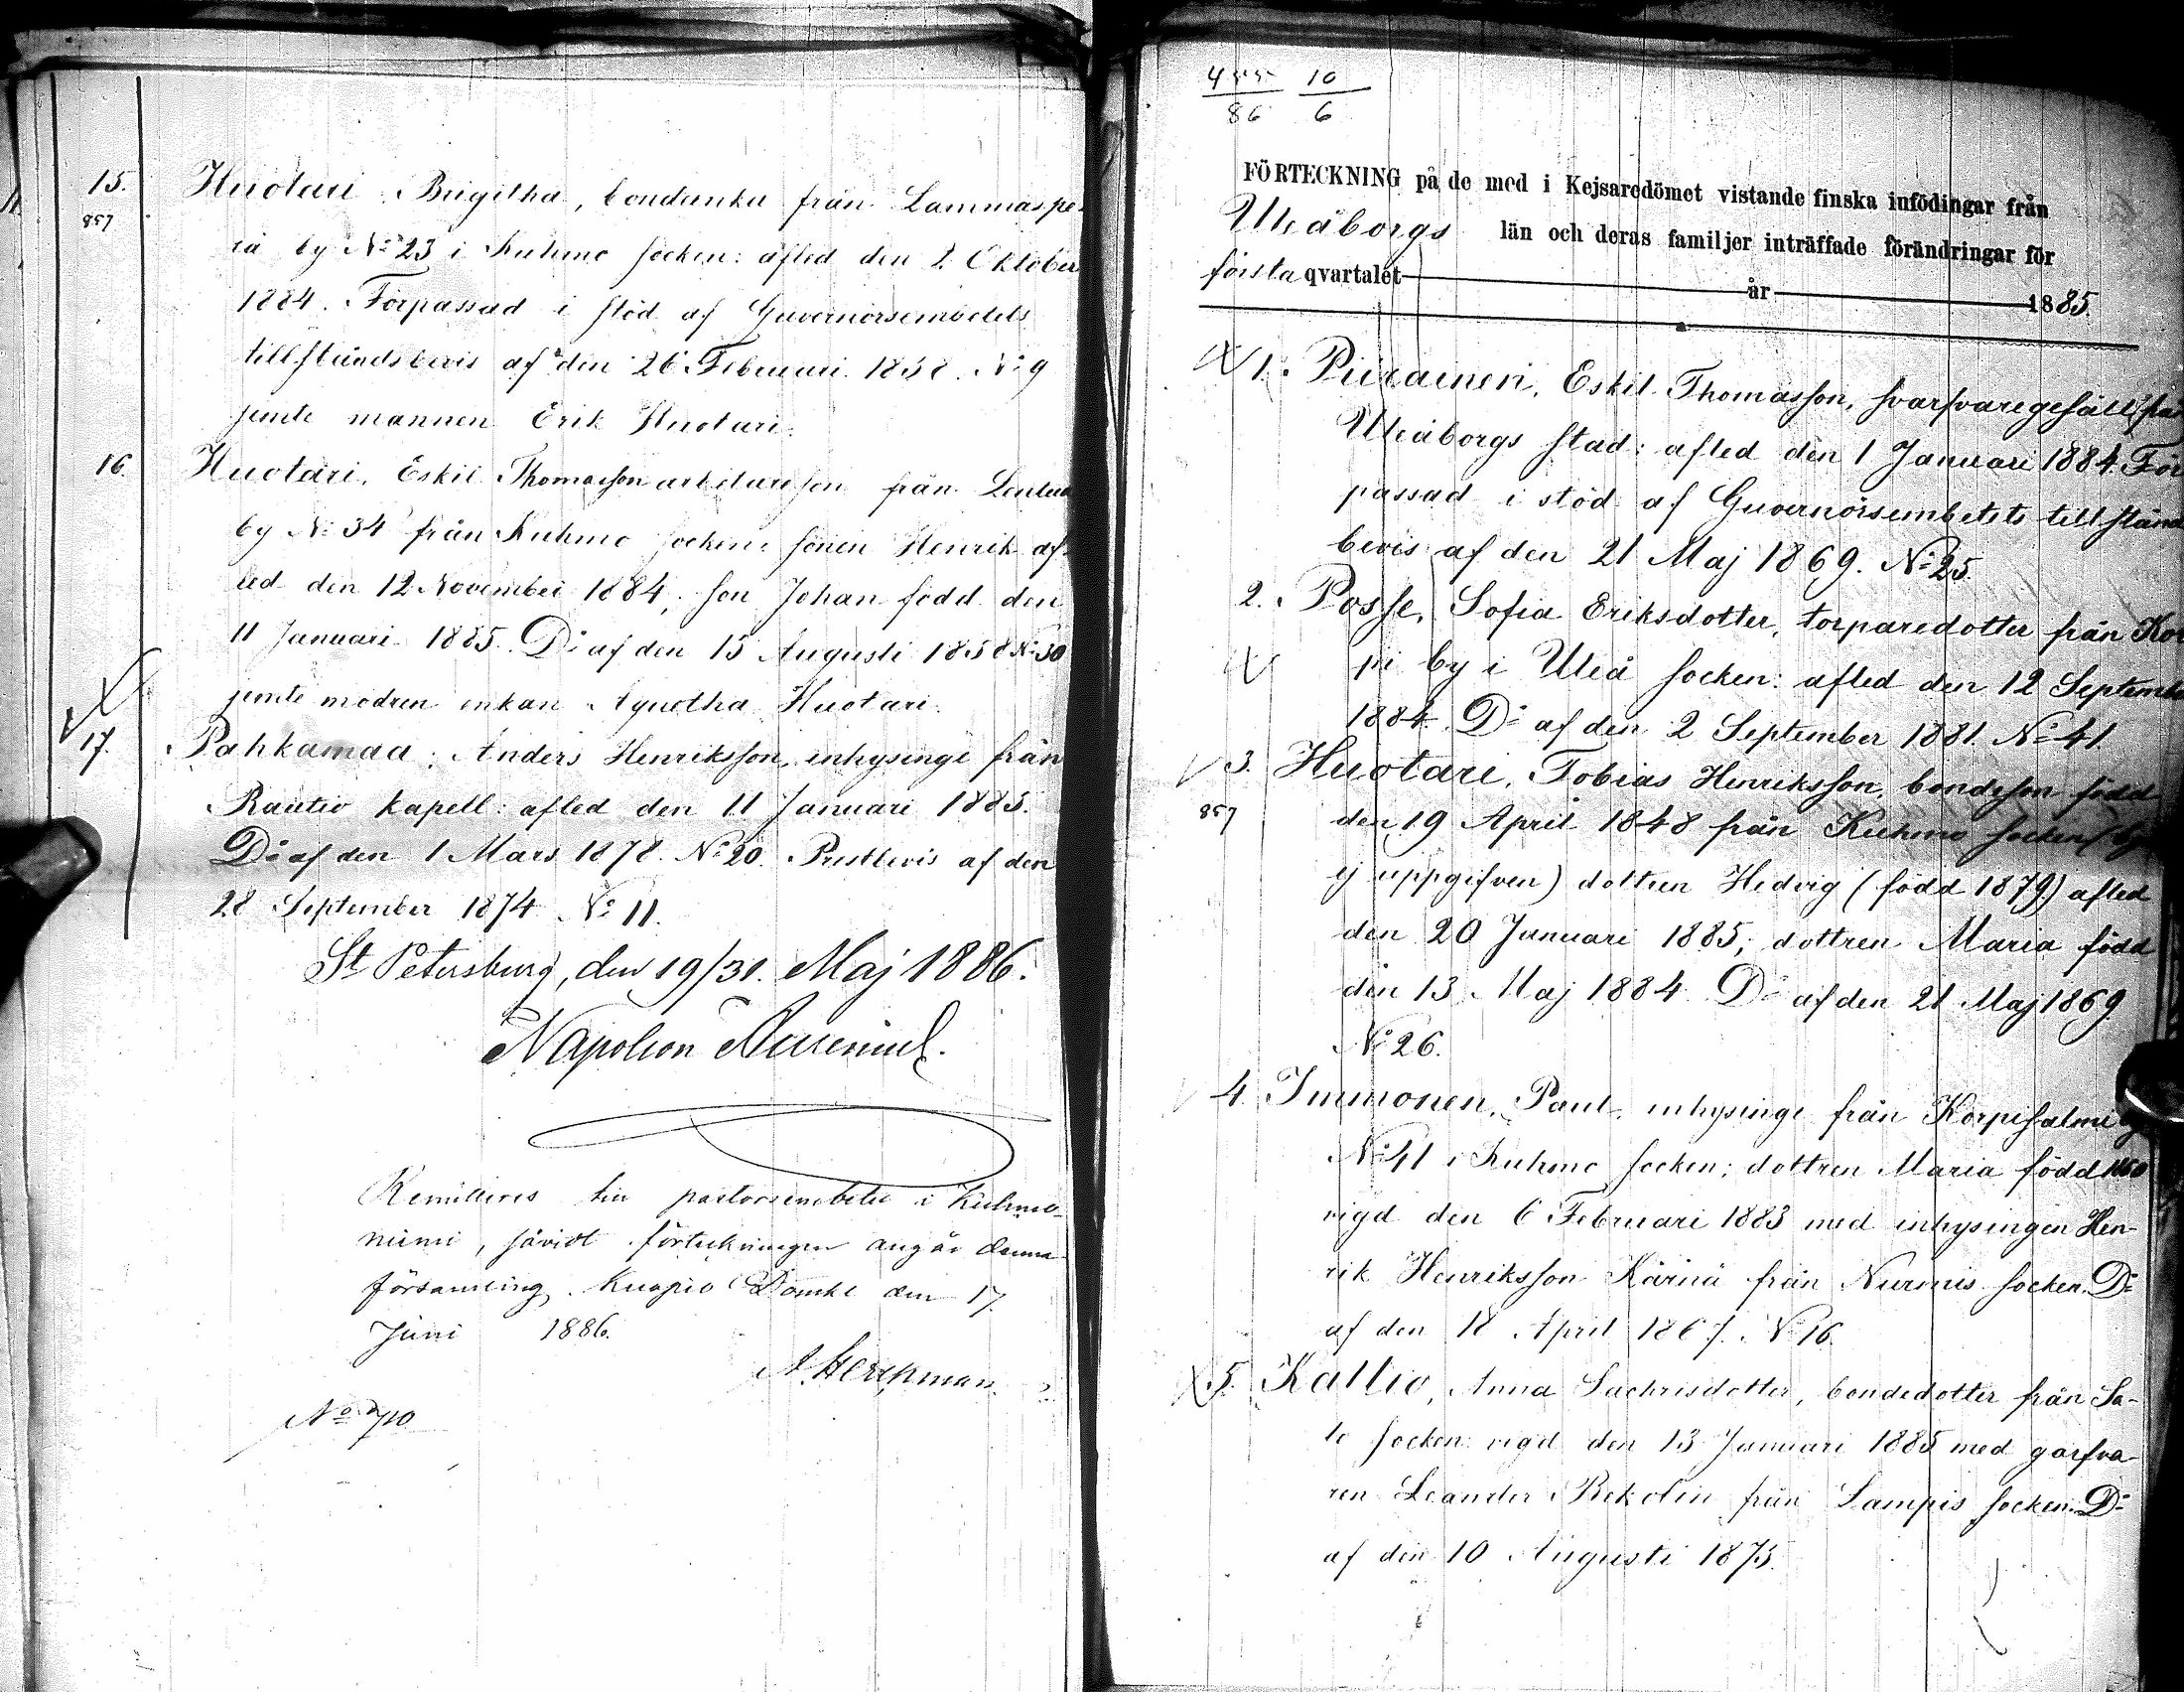 15. Huotari, Brigitha, bondenka från Lammaspe-
857
rä by No 23 i Kuhmo socken: afled den 2 Oktober
1884. Förpassad i stöd af Guvernörsembetets
tillståndsbevis af den 26 Februari 1858. No 9
jemte mannen Erik Huotari.
16. Huotari, Eskil Thomasson arbetareson från Lentua
by No 34 från Kuhmo socken: sonen Henrik af-
led den 12 November 1884; son Johan född den
11 Januari 1885. Do af den 15 Augusti 1858 No 30
jemte modren enkan Agnetha Huotari.
17. Pahkamaa, Anders Henriksson, inhysinge från
Rautio kapell: afled den 11 Januari 1885.
Do af den 1 Mars 1878. No 20. Prestbevis af den
28 September 1874 No 11.
St Petersburg, den 19/31. Maj 1886.
Napoleon
Remitteras till pastorsembetet i Kuhmo-
niemi, såvidt förteckningen angår denna
församling. Kuopio Domk. den 17
Juni 1886.
No 710
455 10
86 6
FÖRTECKNING på de med i Kejsaredömet vistande finska infödingar från
Uleåborgs län och deras familjer inträffade förändringar för
första qvartalet år 1885.
1. Piirainen, Eskil Thomasson, svarfvaregesäll från
Uleåborgs stad: afled den 1 Januari 1884. För
passad i stöd af Guvernörsembetets tillstånds
bevis af den 21 Maj 1869. No 25.
2. Posse, Sofia Eriksdotter, torparedotter från Kor
pi by i Uleå socken: afled den 12 September
1884. Do af den 2 September 1881. No 41.
3. Huotari, Tobias Henriksson, bondeson född
857 den 19 April 1848 från Kuhmo socken (by
ej uppgifven) dottren Hedvig (född 1879) afled
den 20 Januari 1885; dottren Maria född
den 13 Maj 1884. Do af den 21 Maj 1869
No 26.
4. Immonen, Paul, inhysinge från Korpisalmi by
No 41 i Kuhmo socken; dottren Maria född 1860
vigd den 6 Februari 1883 med inhysingen Hen-
rik Henriksson Kärnä från Nurmis socken. Do
af den 18 April 1867. No 16.
5. Kallio, Anna Sachrisdotter, bondedotter från Sa-
lo socken: vigd den 13 Januari 1885 med garfva-
ren Leander Rekolin från Lampis socken. Do
af den 10 Augusti 1875.